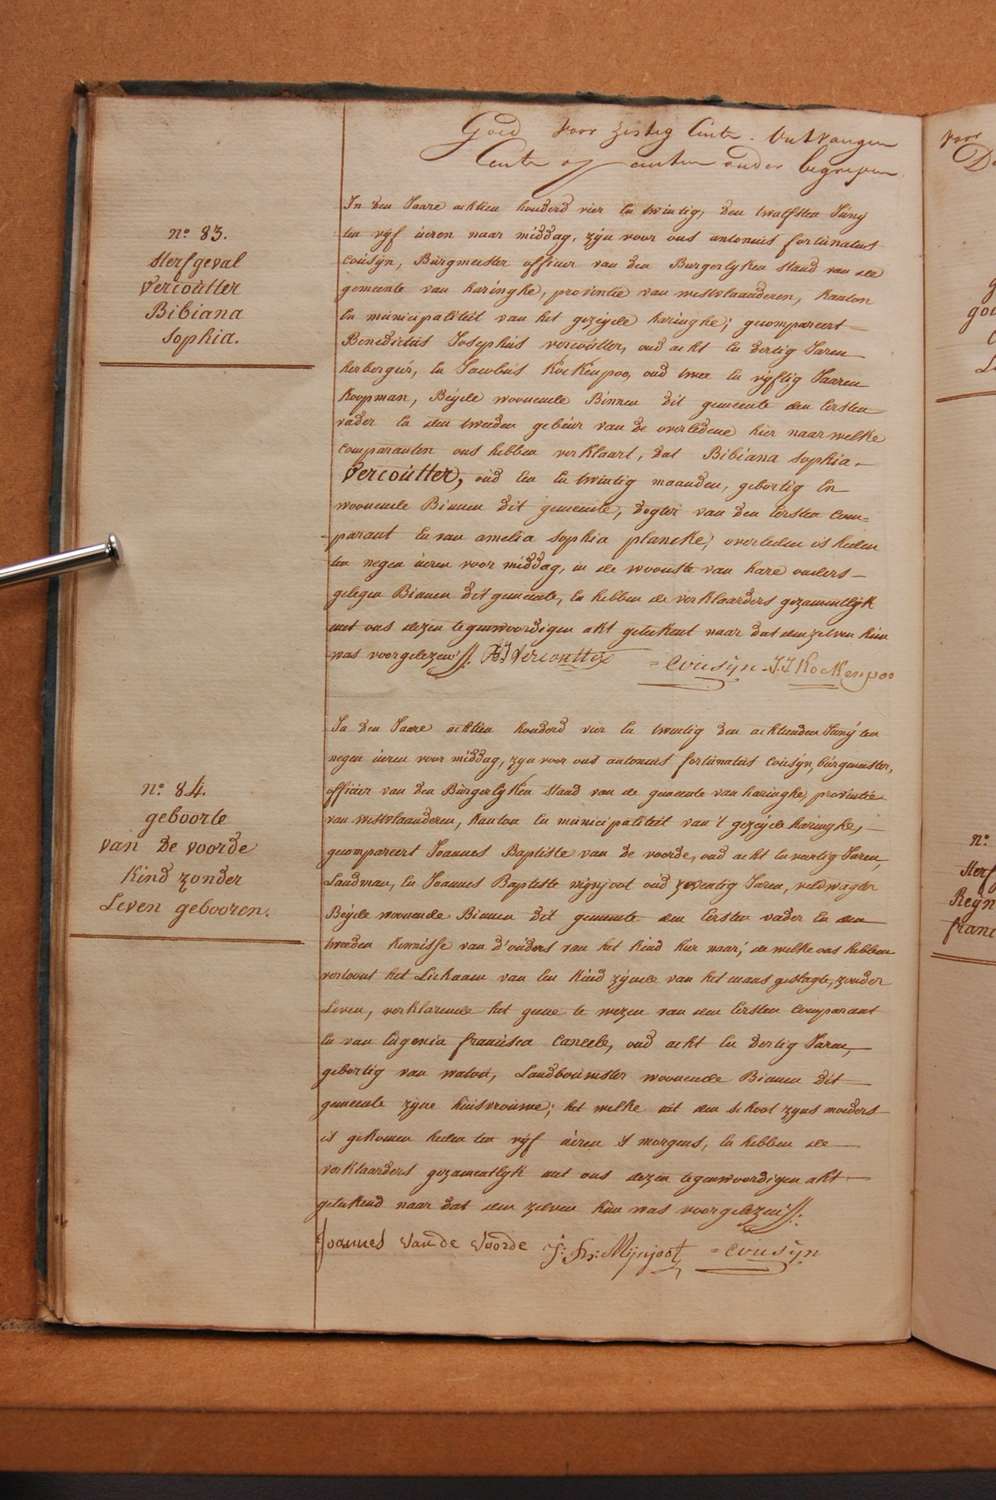 Goed voor zestig Cents. Ontvangen
Cents op centen onder begrepen.
n.º 83.
Sterfgeval
Vercoutter
Bibiana
Sophia.
In den Jaare achtien honderd vier en twintig, den twalfsten Juny
ten vyf úeren naar middag, zyn voor ons antonius fortúnatus
coúsÿn, Búrgmeester officier van den Burgerlyken stand van de
gemeente van haringhe, provintie van westvlaanderen, kanton
en múnicipaliteit van het gezeÿde haringhe; gecompareert
Benedictús Josephús vercoútter, oud acht en dertig Jaren
herbergier, en Jacobús Kockenpoo, oud twee en vÿftig Jaaren
koopman, Beÿde woonende Binnen dit gemeente den eersten
vader en den tweeden gebúer van de overledene hier naar welke
comparanten ons hebben verklaart, dat Bibiana sophia
Vercoútter, oúd een en twintig maanden, gebortig en
woonende Binnen dit gemeente, dogter van den eersten com=
parant en van amelia sophia plancke, overleden is heden
ten negen úeren voor middag, in de wooniste van hare ouders
gelegen Binnen dit gemeente, en hebben de verklaarders gezamentlyk
met ons dezen tegenwoordigen akt geteekent naar dat den zelven hún
was voorgelezen. BJ Vercoutter = Coúsÿn J.J Kockenpoo
n.º 84.
geboorte
van De voorde
Kind zonder
Leven gebooren.
In den Jaare achtien honderd vier en twintig den achtienden Junÿ ten
negen úeren voor middag, zyn voor ons antonius fortúnatús coúsÿn, búrgmeester,
officier van den Búrgerlyken stand van de gemeente van haringhe, provintie
van westvlaanderen, kanton en múnicipaliteit van 't gezeÿde haringhe,
gecompareert Joannes Baptiste van de voorde, oud acht en veertig Jaren,
Landman, en Joannes Baptiste mynjoot oud zeventig Jaren, veldwagter
Beÿde woonende Binnen dit gemeente den eersten vader en den
tweeden kennisse van d'ouders van het kind hier naar; de welke ons hebben
vertoont het Lichaam van een kind zÿnde van het mans geslagte, zonder
Leven, verklarende het gene te wezen van den eersten comparant
en van Eúgenia francisca Caneele, oud acht en dertig Jaren,
gebortig van watoú, Landbouwster woonende Binnen dit
gemeente zÿne húisvrouwe; het welke uit den schoot zyns moeders
is gekomen heden ten vÿf úeren S' morgens, en hebben de
verklaarders gezamentlyk met ons dezen tegenwoordigen akt
geteekend naar dat den zelven hún was voorgelezen
Joannes Van de Voorde J: Bs: Mijnjoot = Coúsÿn